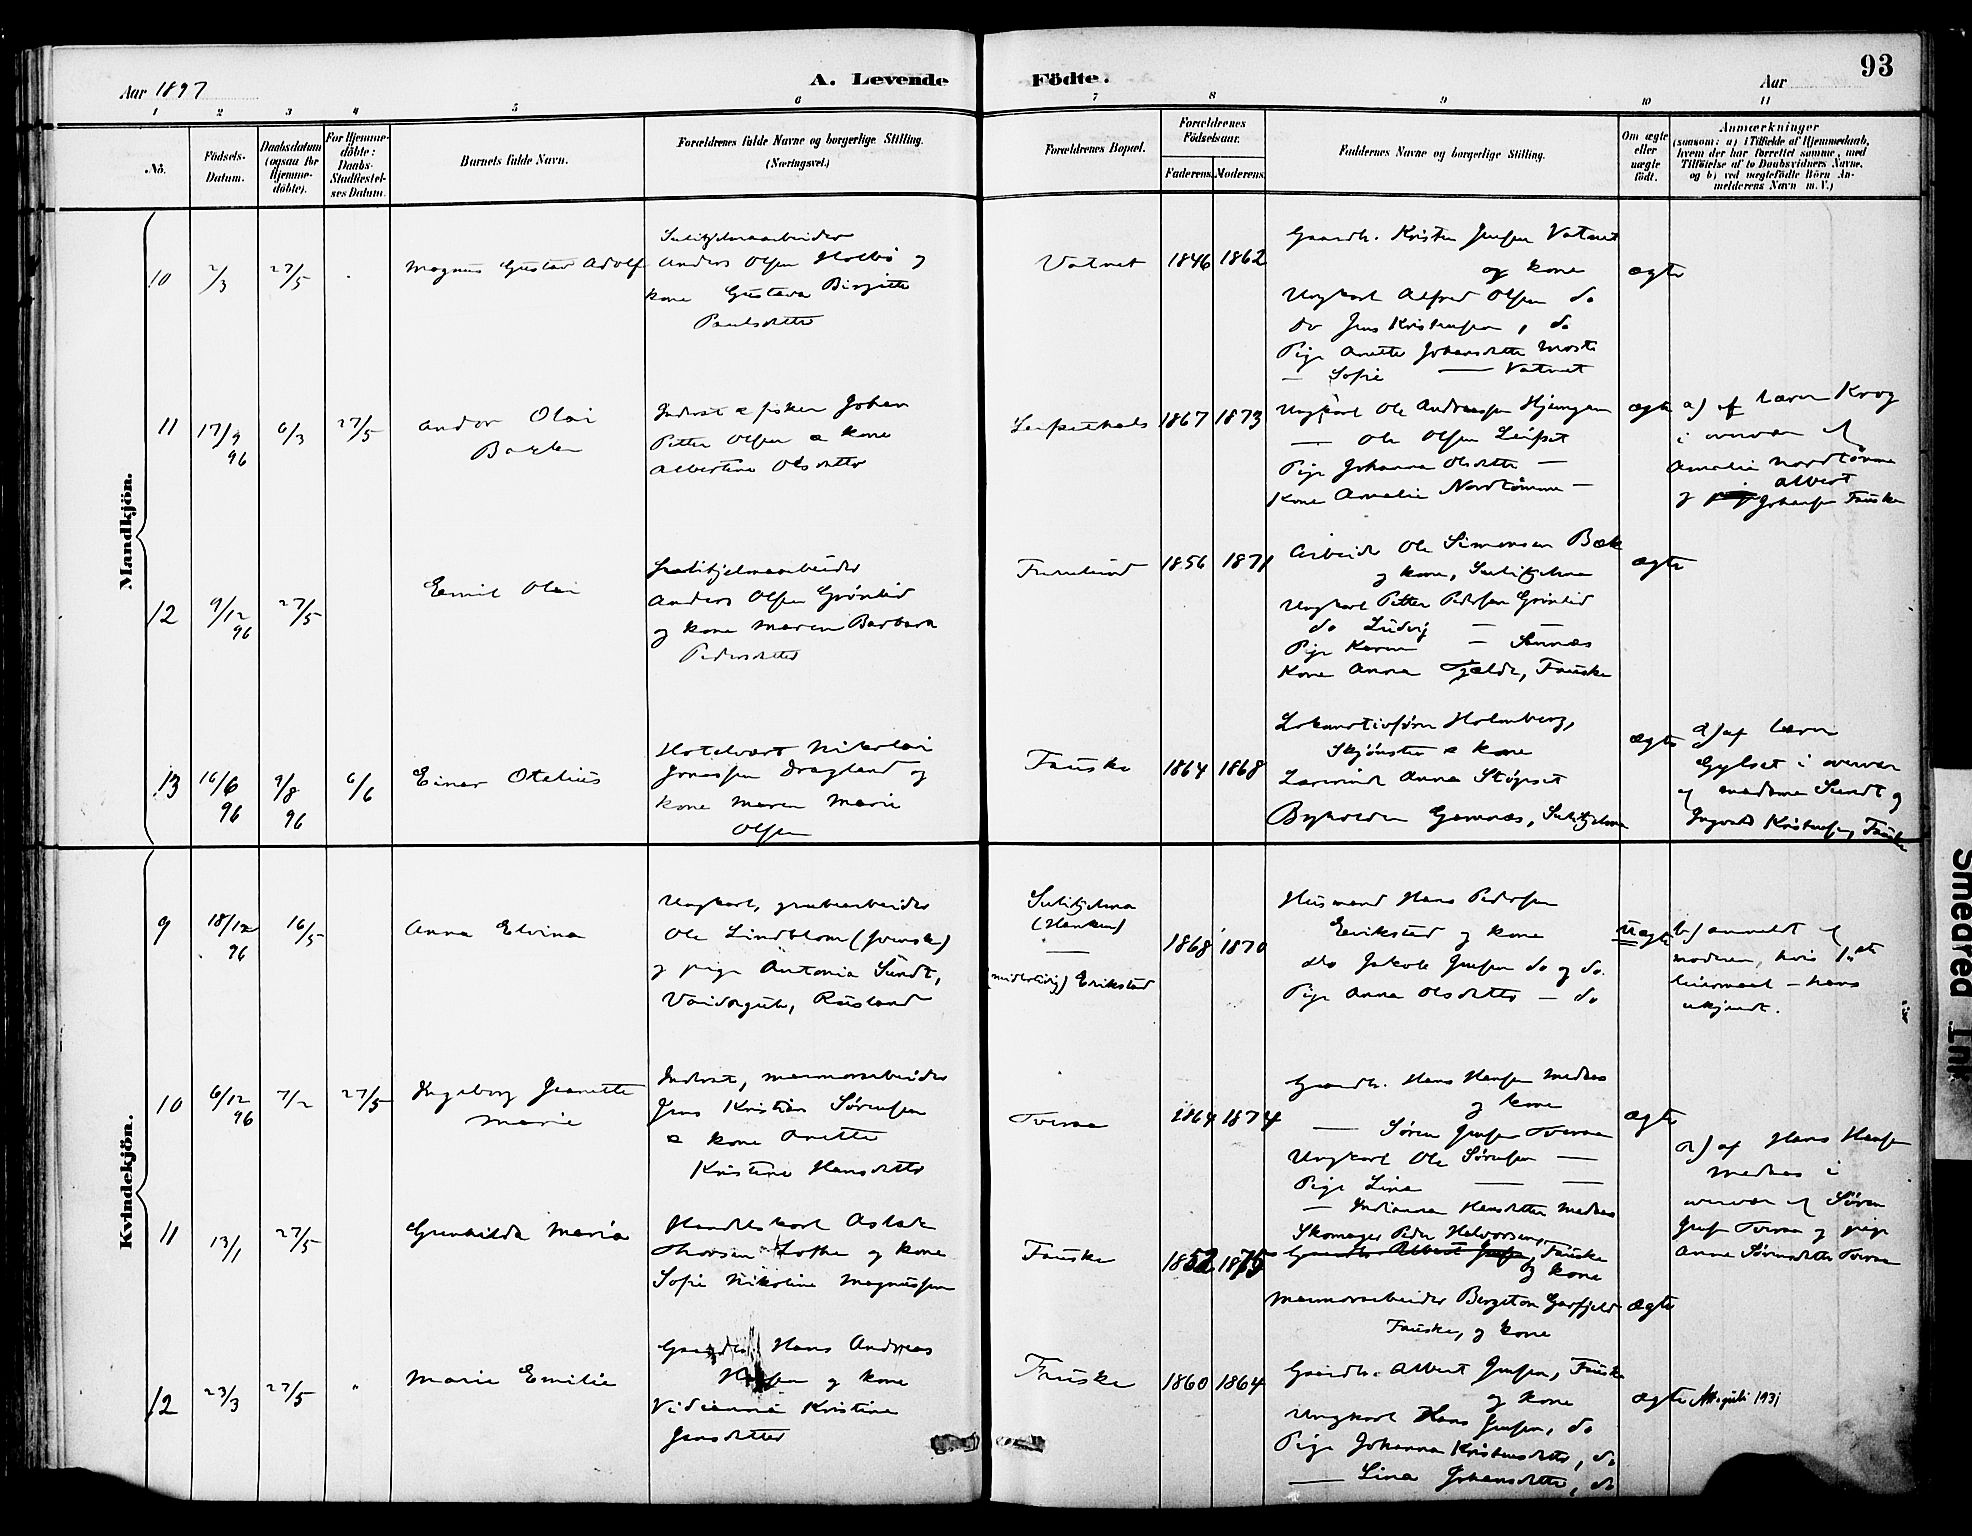 93
Aar 1897
A. Levende Födte.
Aar
1 2 3 4 5 6 7 8 9 10 11
No.
Födsels-
Datum.
Daabsdatum
(ogsaa for
Hjemme-
döbte).
For Hjemme-
döbte:
Daabs-
Stadfæstel-
ses Datum.
Barnets fulde Navn.
Forældrenes fulde Navne og borgerlige Stilling.
(Næringsvei.)
Forældrenes Bopæl.
Forældrenes
Födselsaar.
Faderens. Moderens.
Faddernes Navne og borgerlige Stilling.
Om ægte
eller
uægte
födt.
Anmærkninger
(saasom: a) i Tilfælde af Hjemmedaab,
hvem der har forrettet samme, med
Tilföielse af to Daabsvidners Navne,
og b) ved uægtefödte Börn An-
melderens Navn m. V.)
Mandkjön.
10
2/3
27/5
Magnus Gustav Adolf
Sulitjelmaarbeider
Anders Olsen Holbø og
kone Gustava Birgitte
Paulsdatter
Vatnet
1846 1862
Gaardb. Kristen Jensen Vatnet
og kone
Ungkarl Alfred Olsen do
do Jens Kristensen, do
Pige Anette Johansdatter Moste
— Sofie — Vatnet
ægte
11
17/9
96
6/3
27/5
Andor Olai
Inderst & fisker Johan
Petter Olsen & kone
Albertine Olsdatter
1867 1873
Ungkarl Ole Andreassen
— Ole Olsen Leifset
Pige Johanna Olsdatter —
Kone Amalie Nordtømme —
ægte
a) af lærer Krog
i overvær af
Amalie Nordtømme
og Albert
Johansen Fauske
12
9/12
96
27/5
Emil Olai
Sulitjelmaarbeider
Anders Olsen Grønlid
og kone Maren Barbara
Pedersdatter
Furulund
1856 1871
Arbeider Ole Simonsen Bæk
og kone, Sulitjelma
Ungkarl Petter Pedersen Grønlid
do Ludvig — —
Pige Karen —
Kone Anna Fjeldr, Fauske
ægte
13
16/6
96
9/8
96
6/6
Einar Otelius
Hotelvært Nikolai
Jonassen Dragland og
kone Maren Marie
Olsen
Fauske
1864 1868
Lokomotivfører Holmberg,
Skjønstu & kone
Lærerinde Anna Støpset
Sulitjelma
ægte
a) af lærer
Gylset i overvær
af madame Sundt og
Ingvald Kristensen, Fauske
Kvindekjön.
9
18/12
96
16/5
Anna Elvina
Ungkarl, grubearbeider
Ole Lindblom (svensk)
og pige Antonia Sundt,
Rusland
Sulitjelma
(Hanken)
—
(midlertidig) Erikstad
1868 1870
Husmand Hans Pedersen
Erikstad og kone
dto Jakob Jensen do og do.
Pige Anna Olsdatter — do
Uægte
b) anmeldt af
moderen, hvis 1ste
leiermaal — hans
ukjendt.
10
6/12
96
7/2
27/5
Ingeborg Jeanette
Marie
Inderst, marmorarbeider
Jens Kristian Sørensen
& kone Anette
Kristine Hansdatter
Tveraa
1864 1874
Gaardb. Hans Hansen Medaas
og kone
— Søren Jensen Tveraa
Ungkarl Ole Sørensen —
Pige Lina — —
— Indianna Hansdatter Medaas
ægte
a) af Hans Hansen
Medaas i
overvær af Søren
Jensen Tveraa og pige
Anne Sørensdatter Tveraa
11
13/1
27/5
Gunhilda Maria
Handelskarl Aslak
Thorsen Lothe og kone
Sofie Nikoline Magnussen
Fauske
1852 1875
Skomager Peder Halvorsen,
Gaardbr. Albert Jensen, Fauske
og kone
Marmorarbeider Bergeton Garfjeld
Fauske, og kone
ægte
12
23/3
27/5
Marie Emilie
Gaardbr. Hans Andreas
og kone
Vidianna Kristine
Jensdatter
Fauske
1860 1864
Gaardb. Albert Jensen, Fauske
og kone
Ungkarl Hans Jensen, do
Pige Johanna Kristensdatter, do
— Lina Johansdatter, do
ægte
1931
Smeared Ink